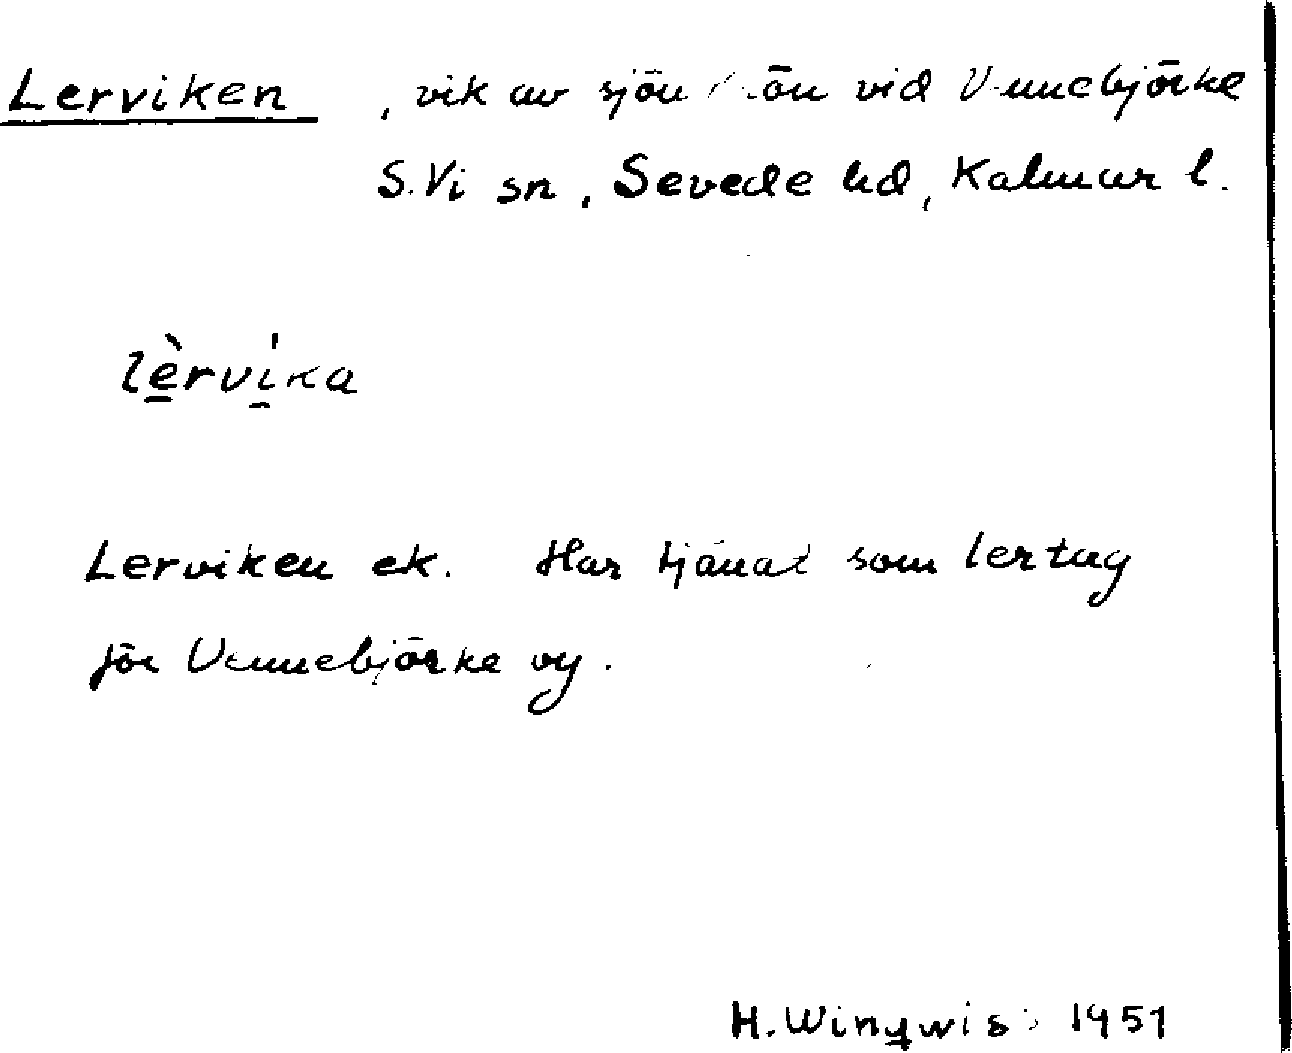 Lerviken , vik av sjön vid Vennebjörke
S. Vi sn, Sevede hd, Kalmar l.
lèrvi̍ka
Lerviken ek. Har tjänat som lertag
för Vennebjörke by.
H. Wingwis 1951